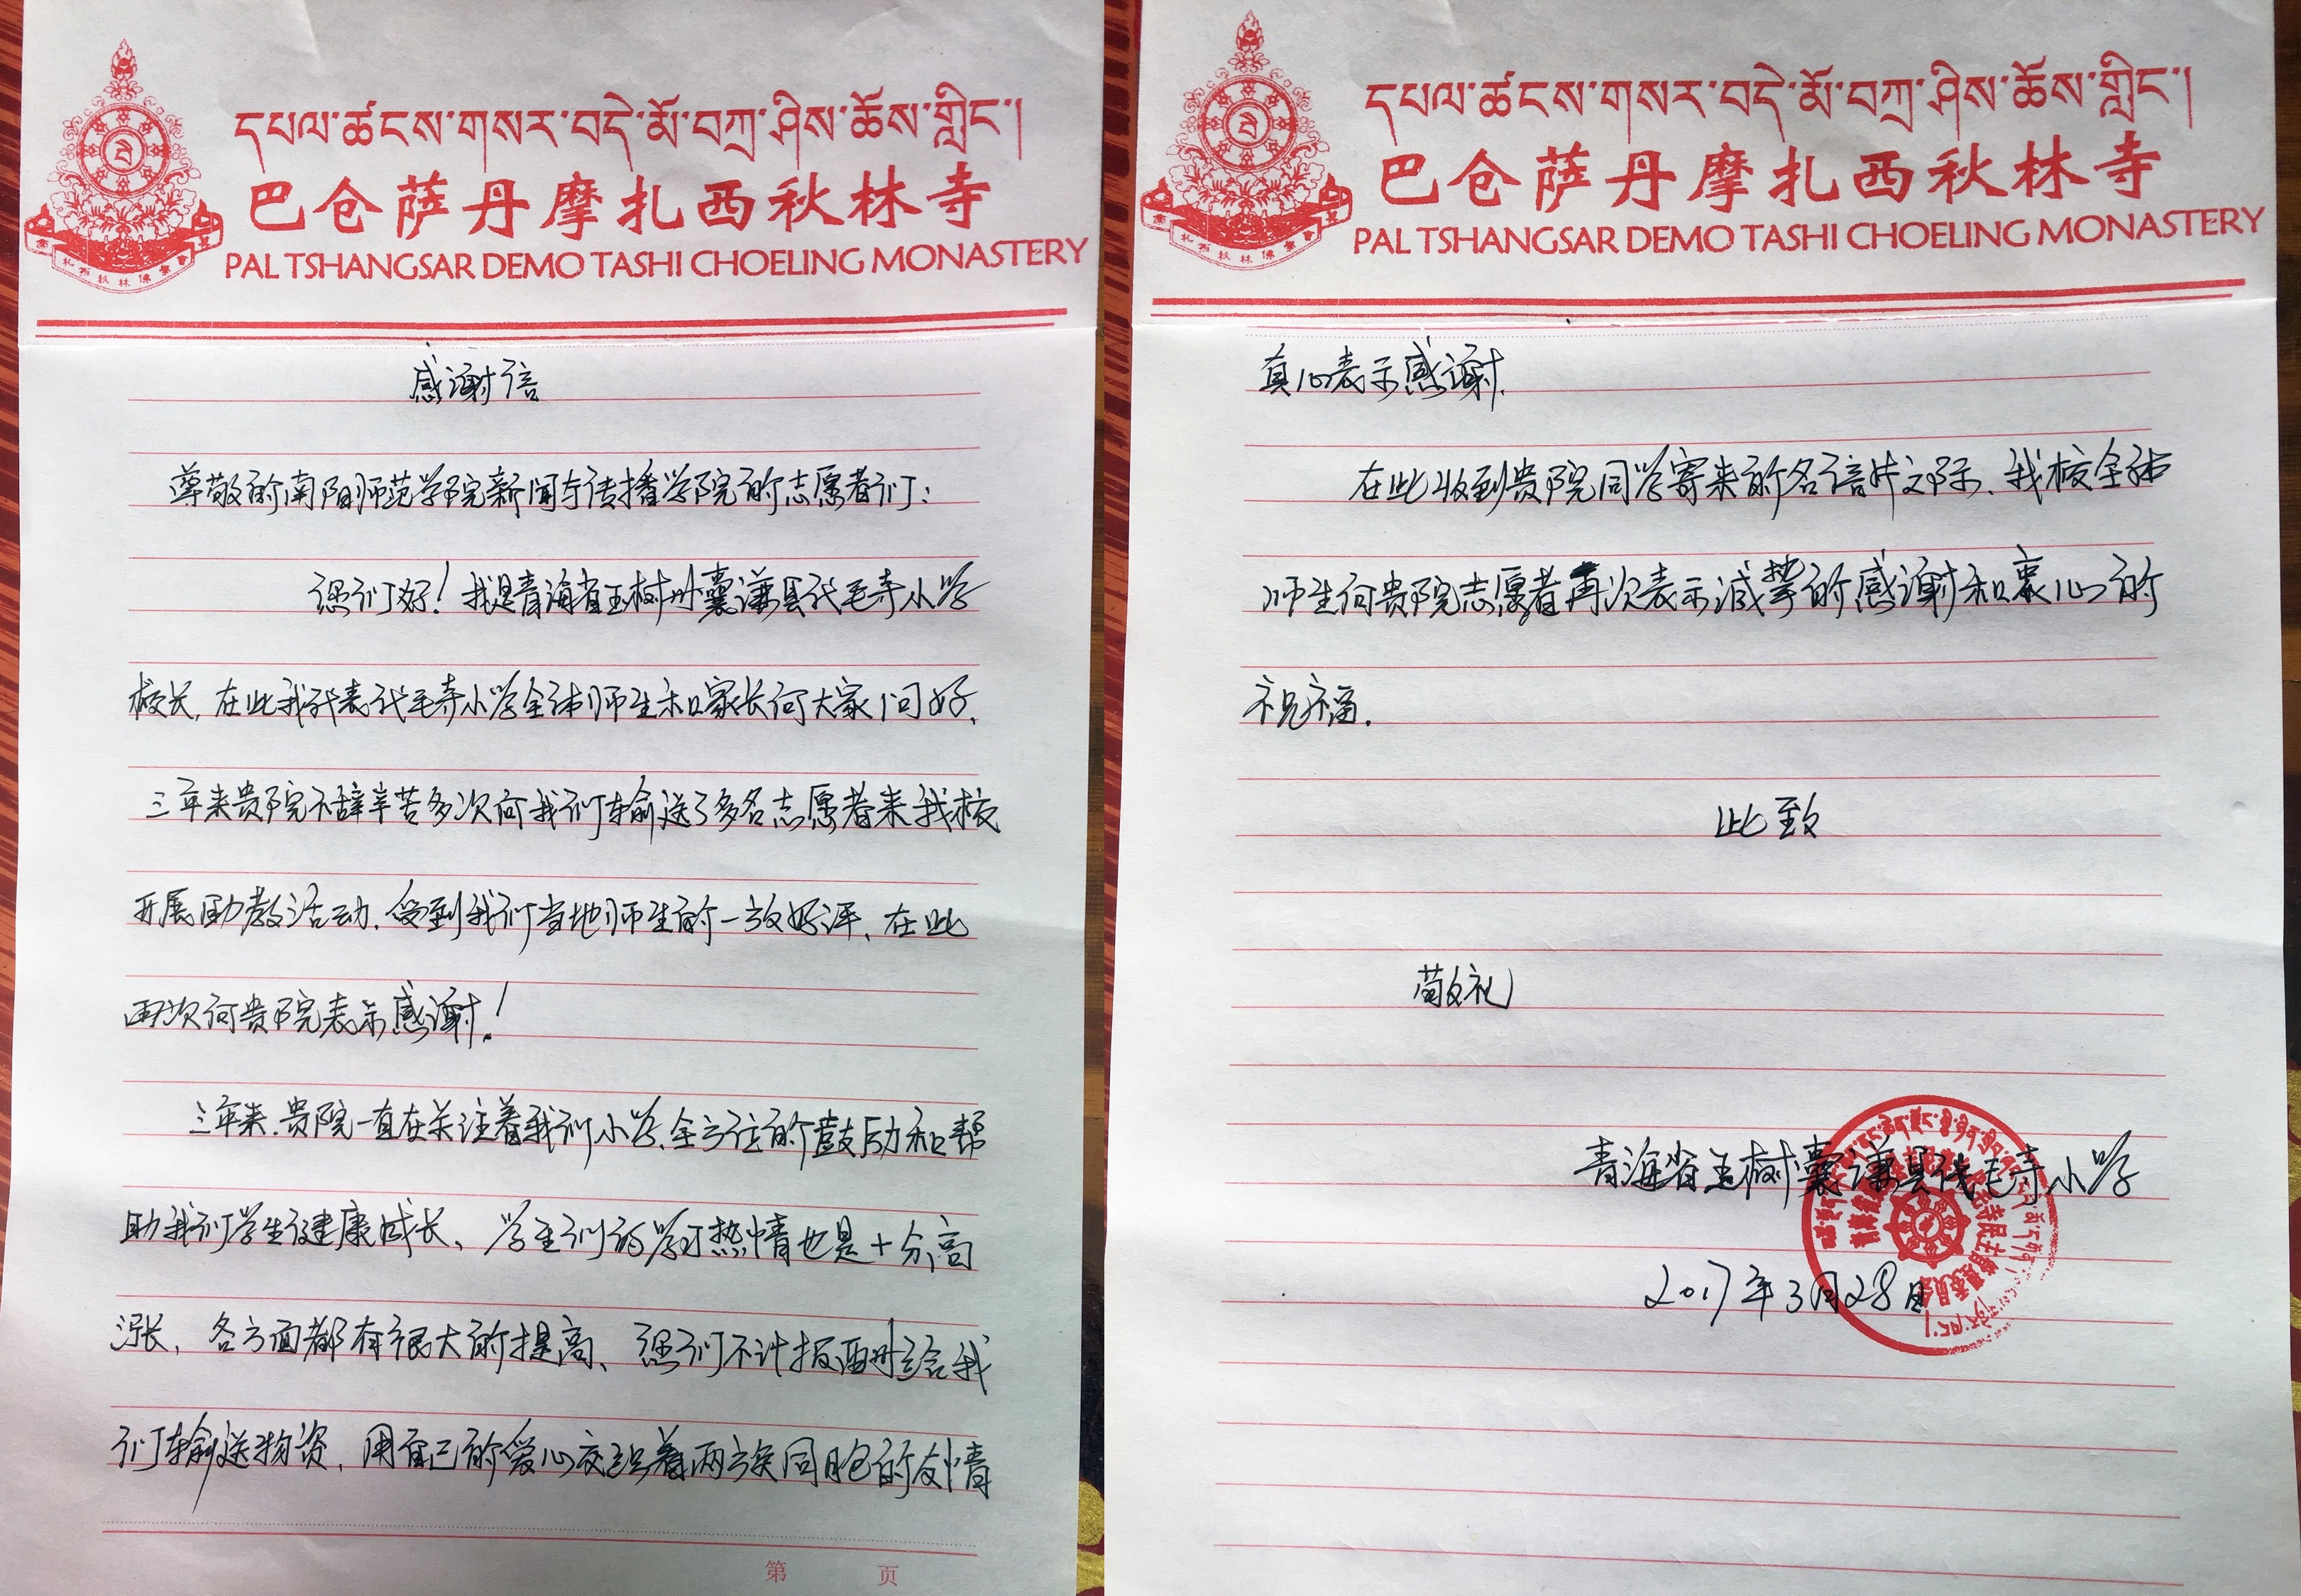 དཔལ་ཚངས་གསར་བདེ་མོ་བཀྲ་ཤིས་ཆོས་གླིང་།
巴仓萨丹摩扎西秋林寺
PAL TSHANGSAR DEMO TASHI CHOELING MONASTERY
感谢信
尊敬的南阳师范学院新闻与传播学院的志愿者们：
您们好！我是青海省玉树州囊谦县代毛寺小学
校长，在此我代表代毛寺小学全体师生和家长向大家问好，
三年来贵院不辞辛苦多次向我们输送了多名志愿者来我校
开展助教活动，受到我们当地师生的一致好评、在此
再次向贵院表示感谢！
三年来，贵院一直在关注着我们小学，全方位的鼓励和帮
助我们学生健康成长、学生们的学习热情也是十分高
涨，各方面都有很大的提高、您们不计报酬给我
们输送物资，用自己的爱心交织着两族同胞的友情
第 页
དཔལ་ཚངས་གསར་བདེ་མོ་བཀྲ་ཤིས་ཆོས་གླིང་།
巴仓萨丹摩扎西秋林寺
PAL TSHANGSAR DEMO TASHI CHOELING MONASTERY
真心表示感谢.
在此收到贵院同学寄来的名信片之际、我校全体
师生向贵院志愿者再次表示诚挚的感谢和衷心的
祝福.
此致
敬礼
青海省玉树囊谦县代毛寺小学
2017年3月28日